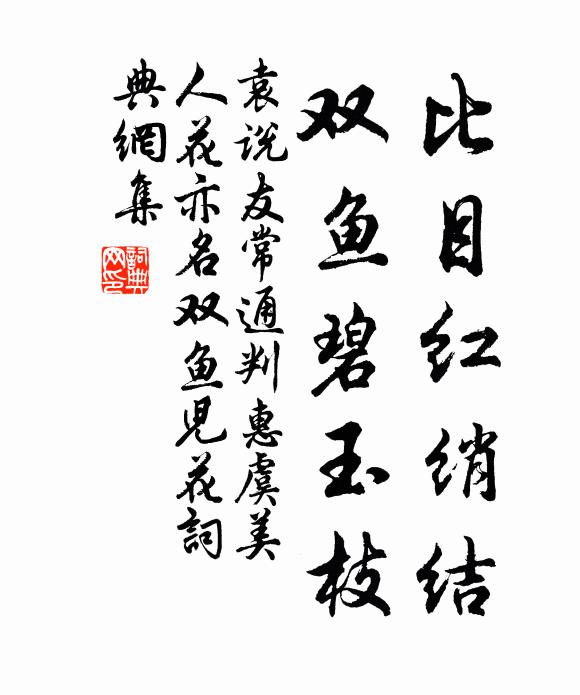 比目红绡结
双鱼碧玉枝
袁说友常通判惠虞美
人花亦名双鱼儿花詞
典網集
詞典
网印